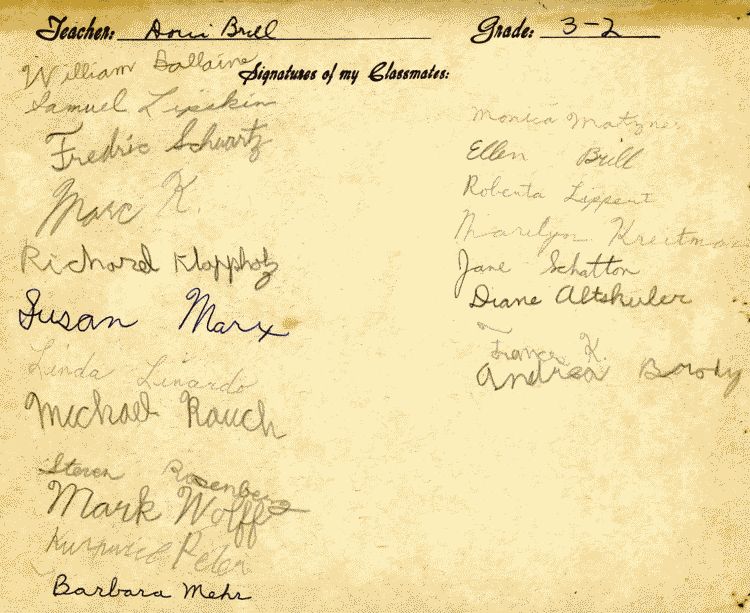 Teacher: Doris Brill
Grade: 3-2
Signatures of my Classmates:
William Ballaine
Samuel Lipskin
Fredric Schwartz
Marc K.
Richard Klappholz
Susan Marx
Linda Linardo
Michael Rauch
Steven Rosenberg
Mark Wolff
Peter
Barbara Mehr
Monica Matzner
Ellen Brill
Roberta Lippert
Marilyn Kreitman
Jane Schatton
Diane Altshuler
Frances K.
Andrea Brody